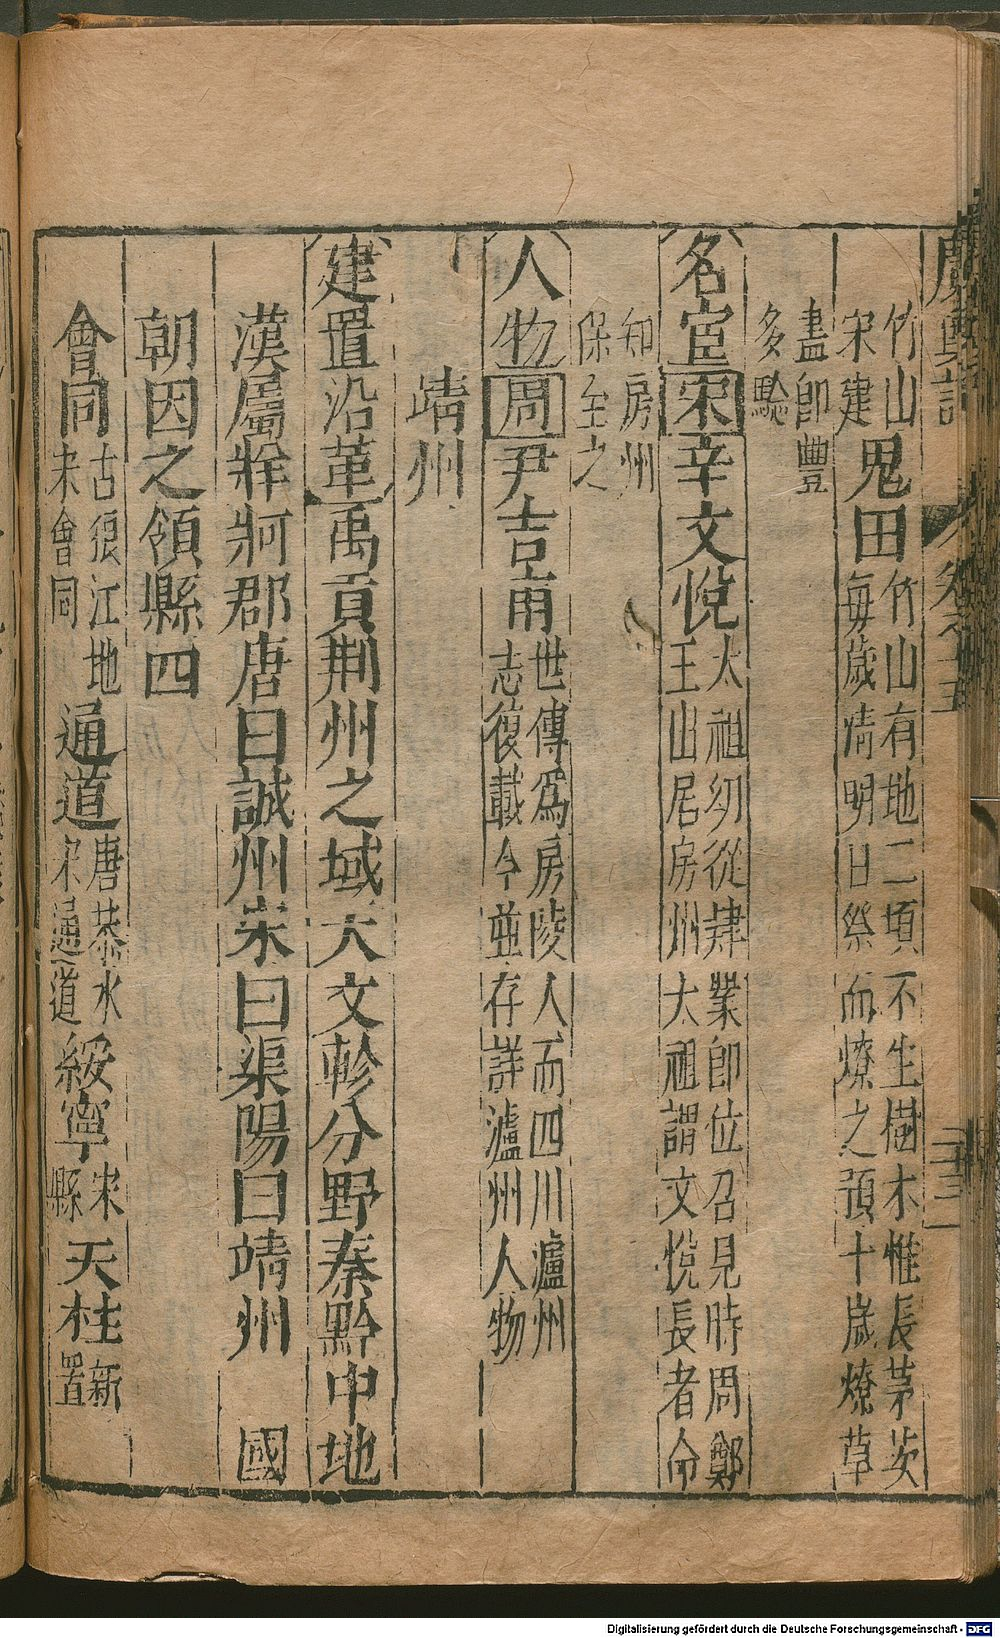 廣輿記 卷十五 二十三
竹山 宋建 鬼田 竹山有地二頃不生樹木惟長茅茨 每歲清明日祭而燎之預十歲燎草
盡即豐 多驗
名宦 宋 辛文悅 太祖幼從肄業即位召見時周鄭 王出居房州太祖謂文悅長者命
知房州 保全之
人物 周 尹吉甫 世傳爲房陵人而四川瀘州 志復載今並存詳瀘州人物
靖州
建置沿革 禹貢荆州之域天文軫分野秦黔中地
漢屬牂牁郡唐曰誠州宋曰渠陽曰靖州 國
朝因之領縣四
會同 古狼江地 宋會同 通道 唐恭水 宋通道 綏寧 宋縣 天柱 新置
Digitalisierung gefördert durch die Deutsche Forschungsgemeinschaft - DFG